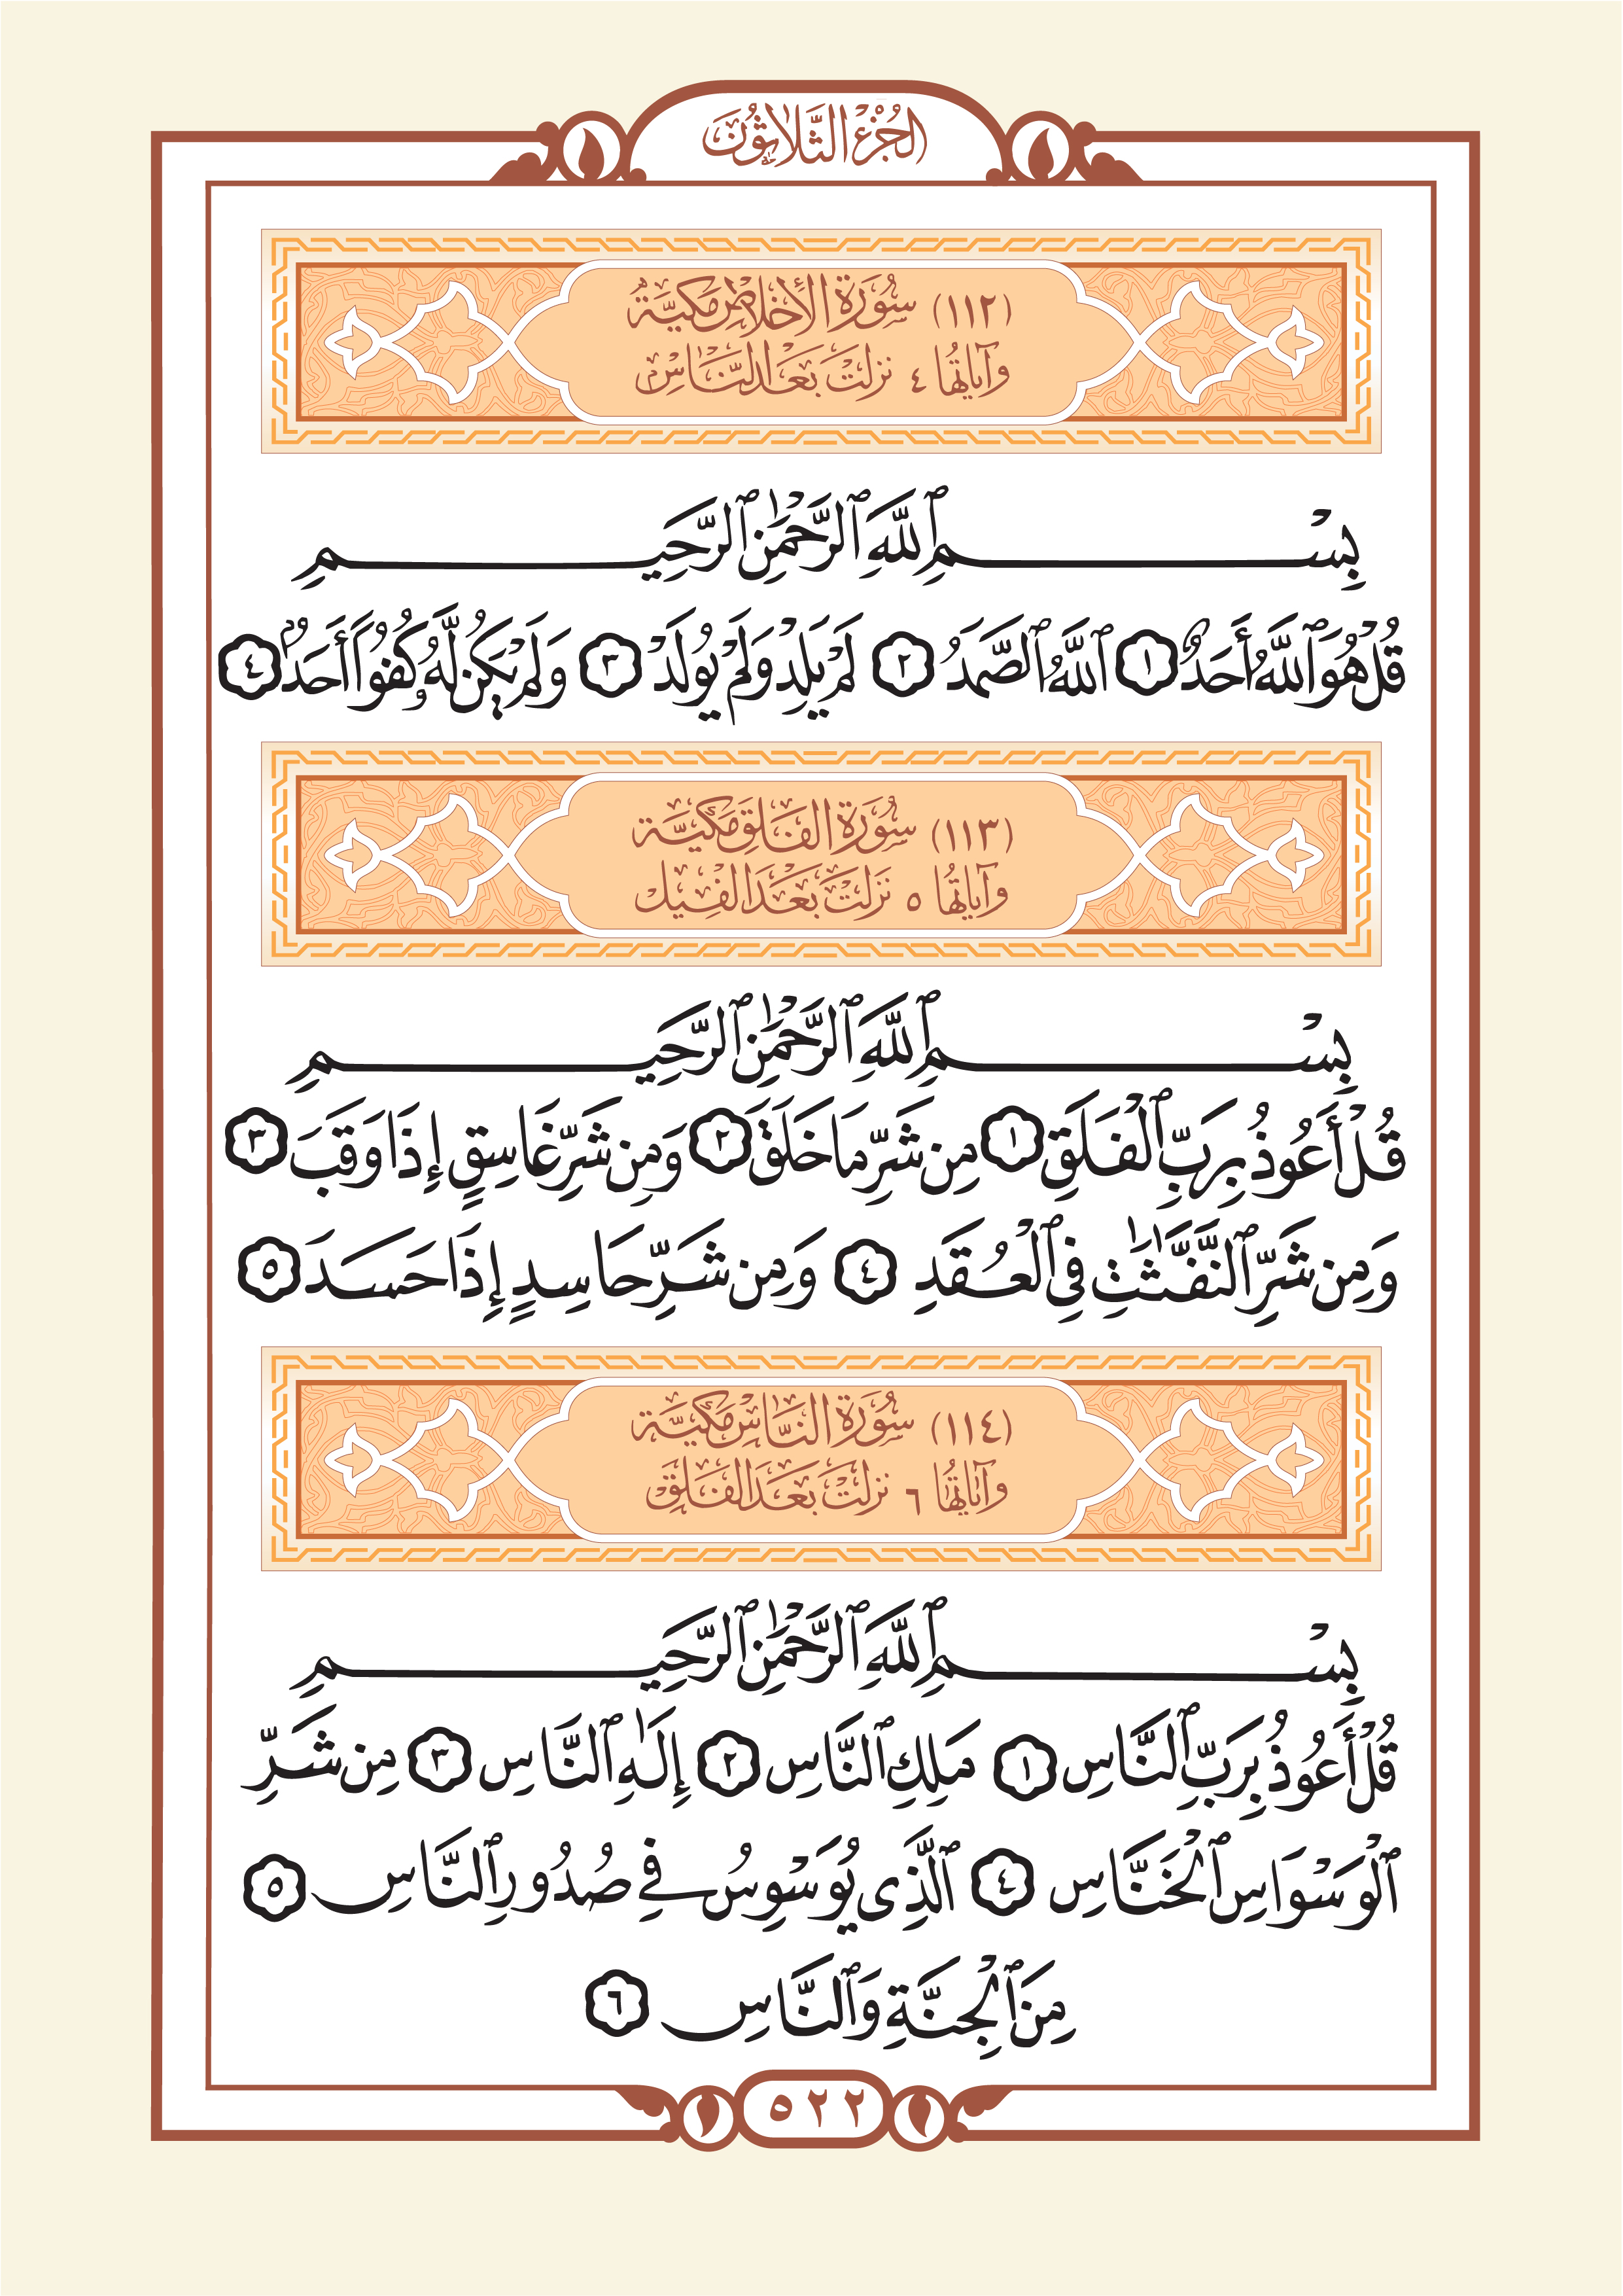 الجُزْءُ الثَّلَاثُونَ
(١١٢) سُورَةُ الْإِخْلَاصِ مَكِّيَّةٌ
وَآيَاتُهَا ٤ نَزَلَتْ بَعْدَ النَّاسِ
بِسْمِ ٱللَّهِ ٱلرَّحْمَٰنِ ٱلرَّحِيمِ
قُلْ هُوَ ٱللَّهُ أَحَدٌ ١ ٱللَّهُ ٱلصَّمَدُ ٢ لَمْ يَلِدْ وَلَمْ يُولَدْ ٣ وَلَمْ يَكُن لَّهُۥ كُفُوًا أَحَدٌۢ ٤
(١١٣) سُورَةُ الْفَلَقِ مَكِّيَّة
وَآيَاتُهَا ٥ نَزَلَتْ بَعْدَ الْفِيلِ
بِسْمِ ٱللَّهِ ٱلرَّحْمَٰنِ ٱلرَّحِيمِ
قُلْ أَعُوذُ بِرَبِّ ٱلْفَلَقِ ١ مِن شَرِّ مَا خَلَقَ ٢ وَمِن شَرِّ غَاسِقٍ إِذَا وَقَبَ ٣
وَمِن شَرِّ ٱلنَّفَّٰثَٰتِ فِى ٱلْعُقَدِ ٤ وَمِن شَرِّ حَاسِدٍ إِذَا حَسَدَ ٥
(١١٤) سُورَةُ النَّاسِ مَكِّيَّة
وَآيَاتُهَا ٦ نَزَلَتْ بَعْدَ الْفَلَقِ
بِسْمِ ٱللَّهِ ٱلرَّحْمَٰنِ ٱلرَّحِيمِ
قُلْ أَعُوذُ بِرَبِّ ٱلنَّاسِ ١ مَلِكِ ٱلنَّاسِ ٢ إِلَٰهِ ٱلنَّاسِ ٣ مِن شَرِّ
ٱلْوَسْوَاسِ ٱلْخَنَّاسِ ٤ ٱلَّذِى يُوَسْوِسُ فِى صُدُورِ ٱلنَّاسِ ٥
مِنَ ٱلْجِنَّةِ وَٱلنَّاسِ ٦
٥٢٢